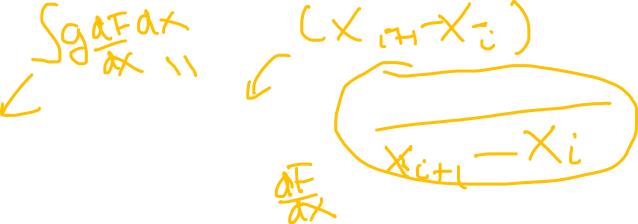 ∫g dF/dx dx " (x_{i+1} - x_i)
x_{i+1} - x_i
dF/dx